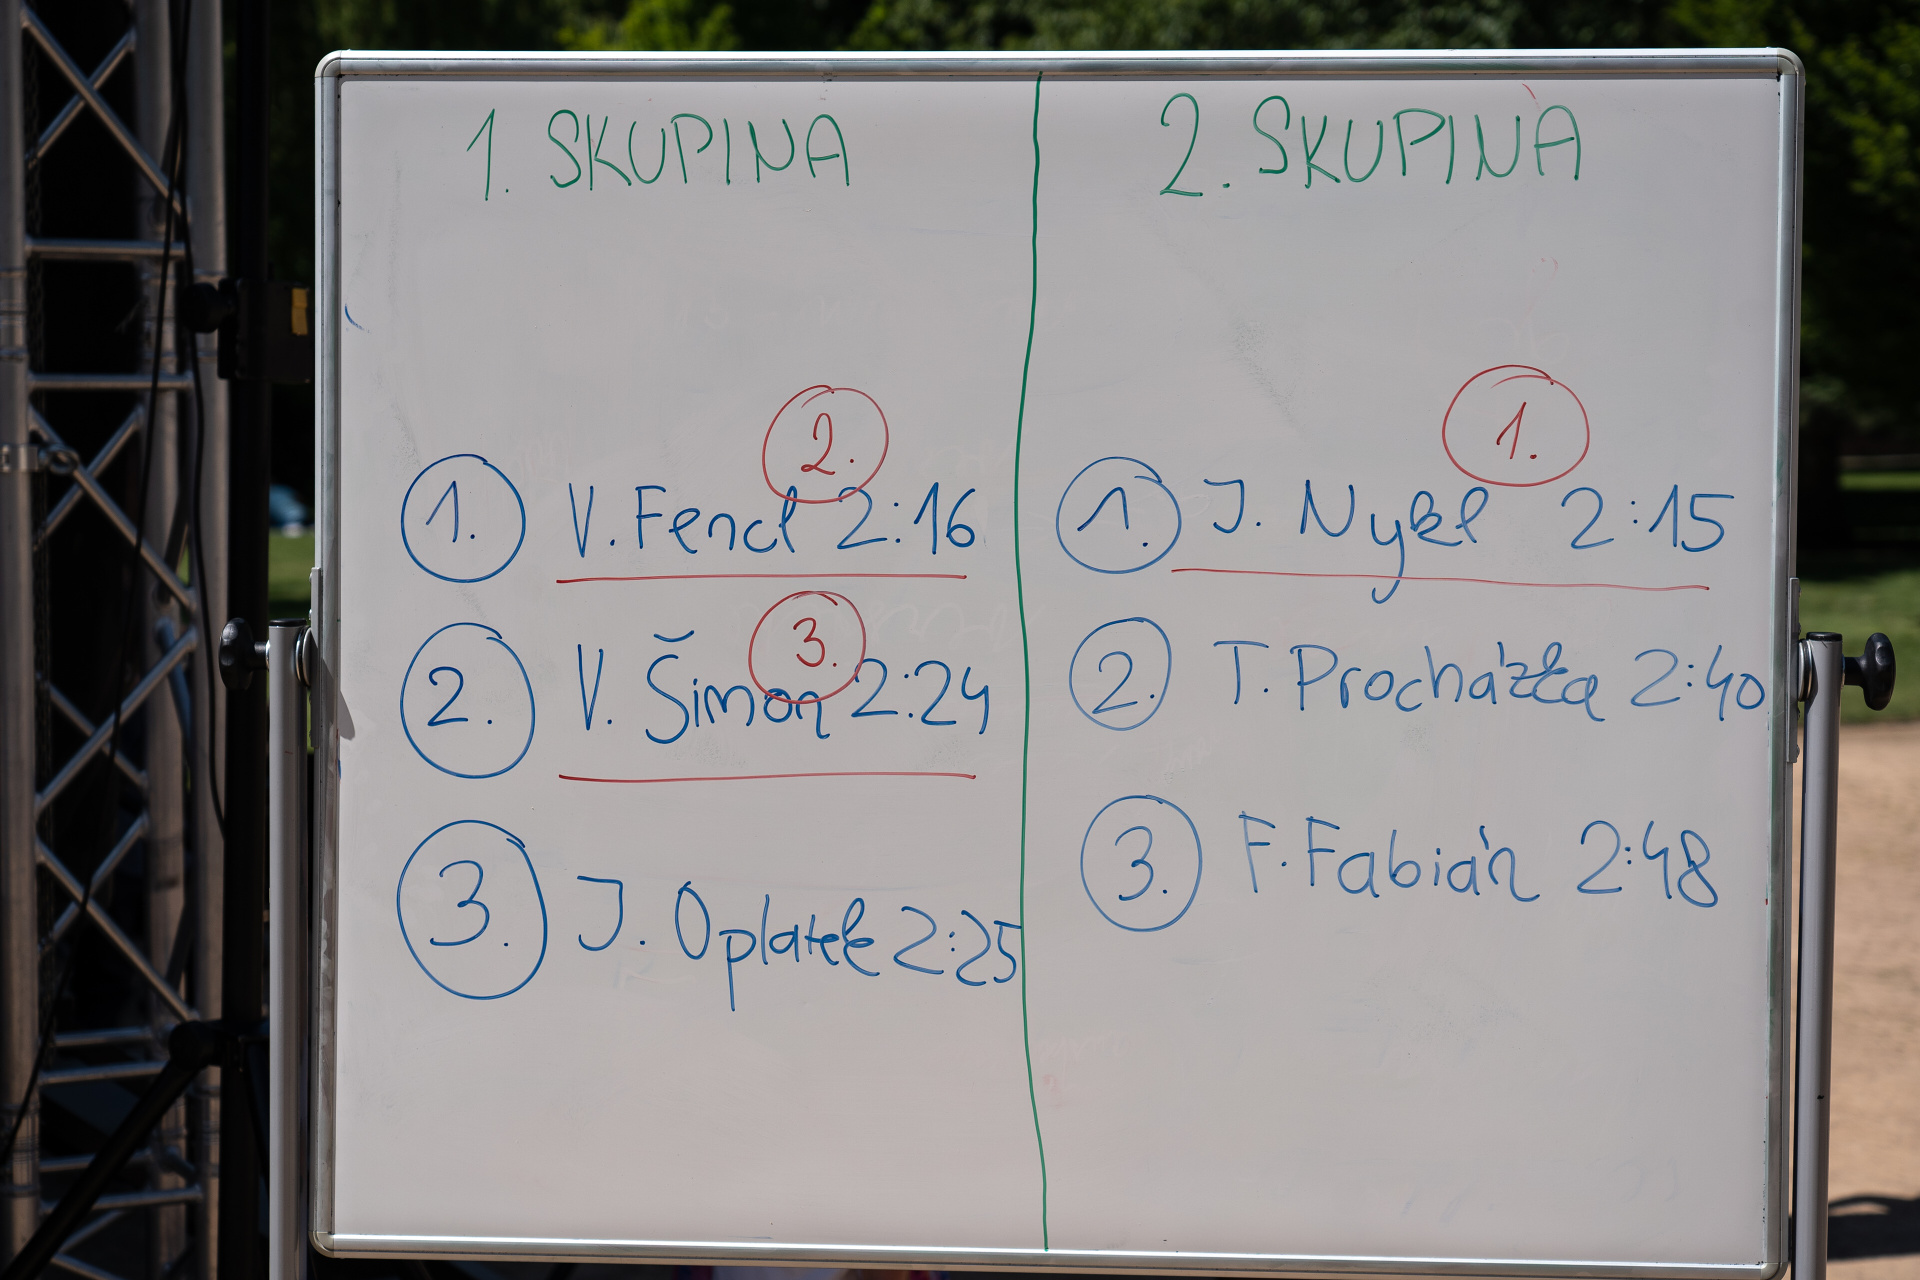 1. SKUPINA
2.
1. V. Fencl 2:16
3.
2. V. Šimon 2:24
3. J. Oplatek 2:25
2. SKUPINA
1.
1. J. Nykl 2:15
2. T. Procházka 2:40
3. F. Fabián 2:48